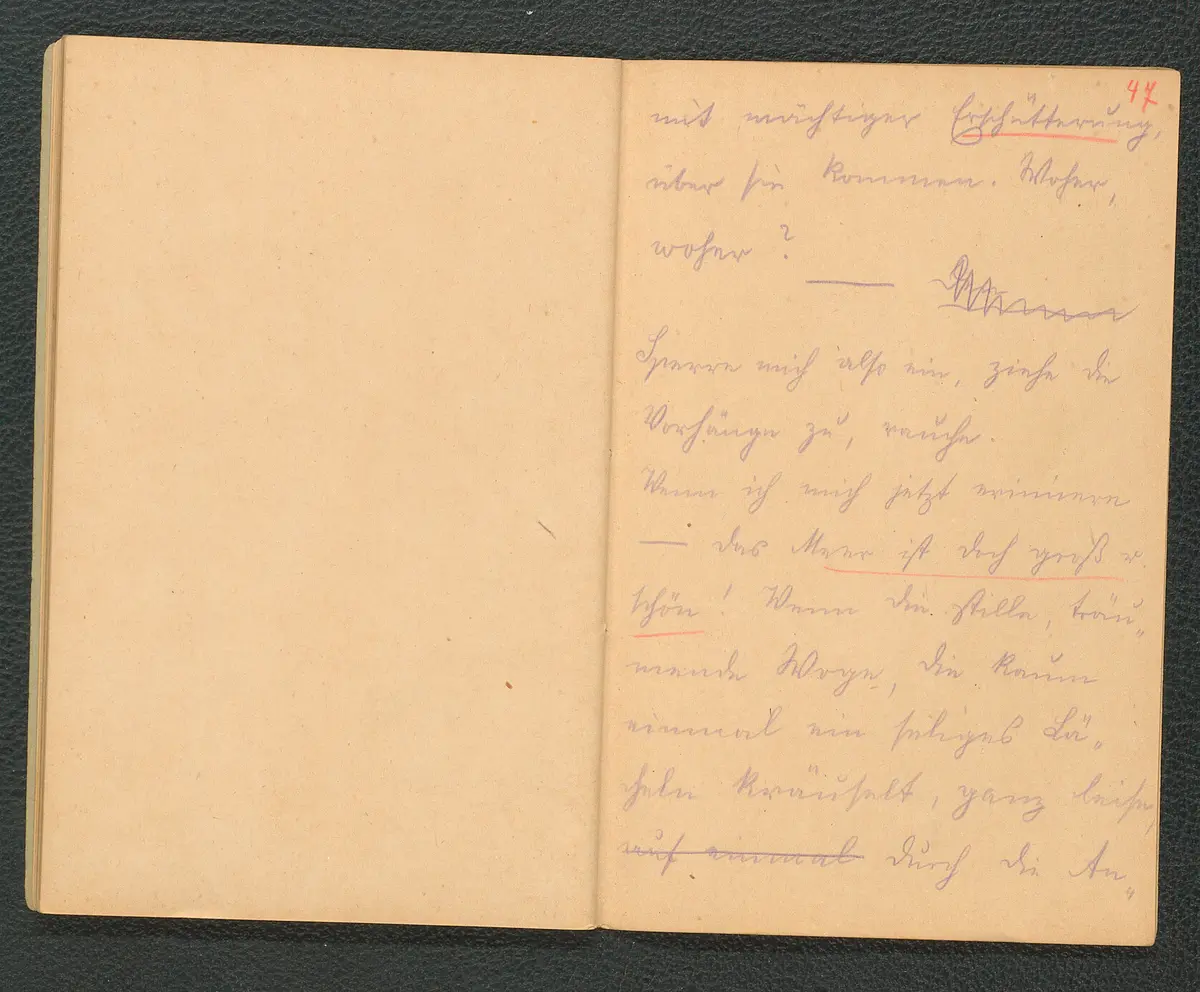 47
mit mächtiger Erschütterung,
über sie kommen. Woher,
woher?
—
Sperre mich also ein, ziehe die
Vorhänge zu, rauche.
Wenn ich mich jetzt erinnere
— das Meer ist doch groß u.
schön! Wenn die stille, träu„
mende Woge, die kaum
einmal ein seliges Lä„
cheln kräuselt, ganz leise,
auf einmal durch die An„